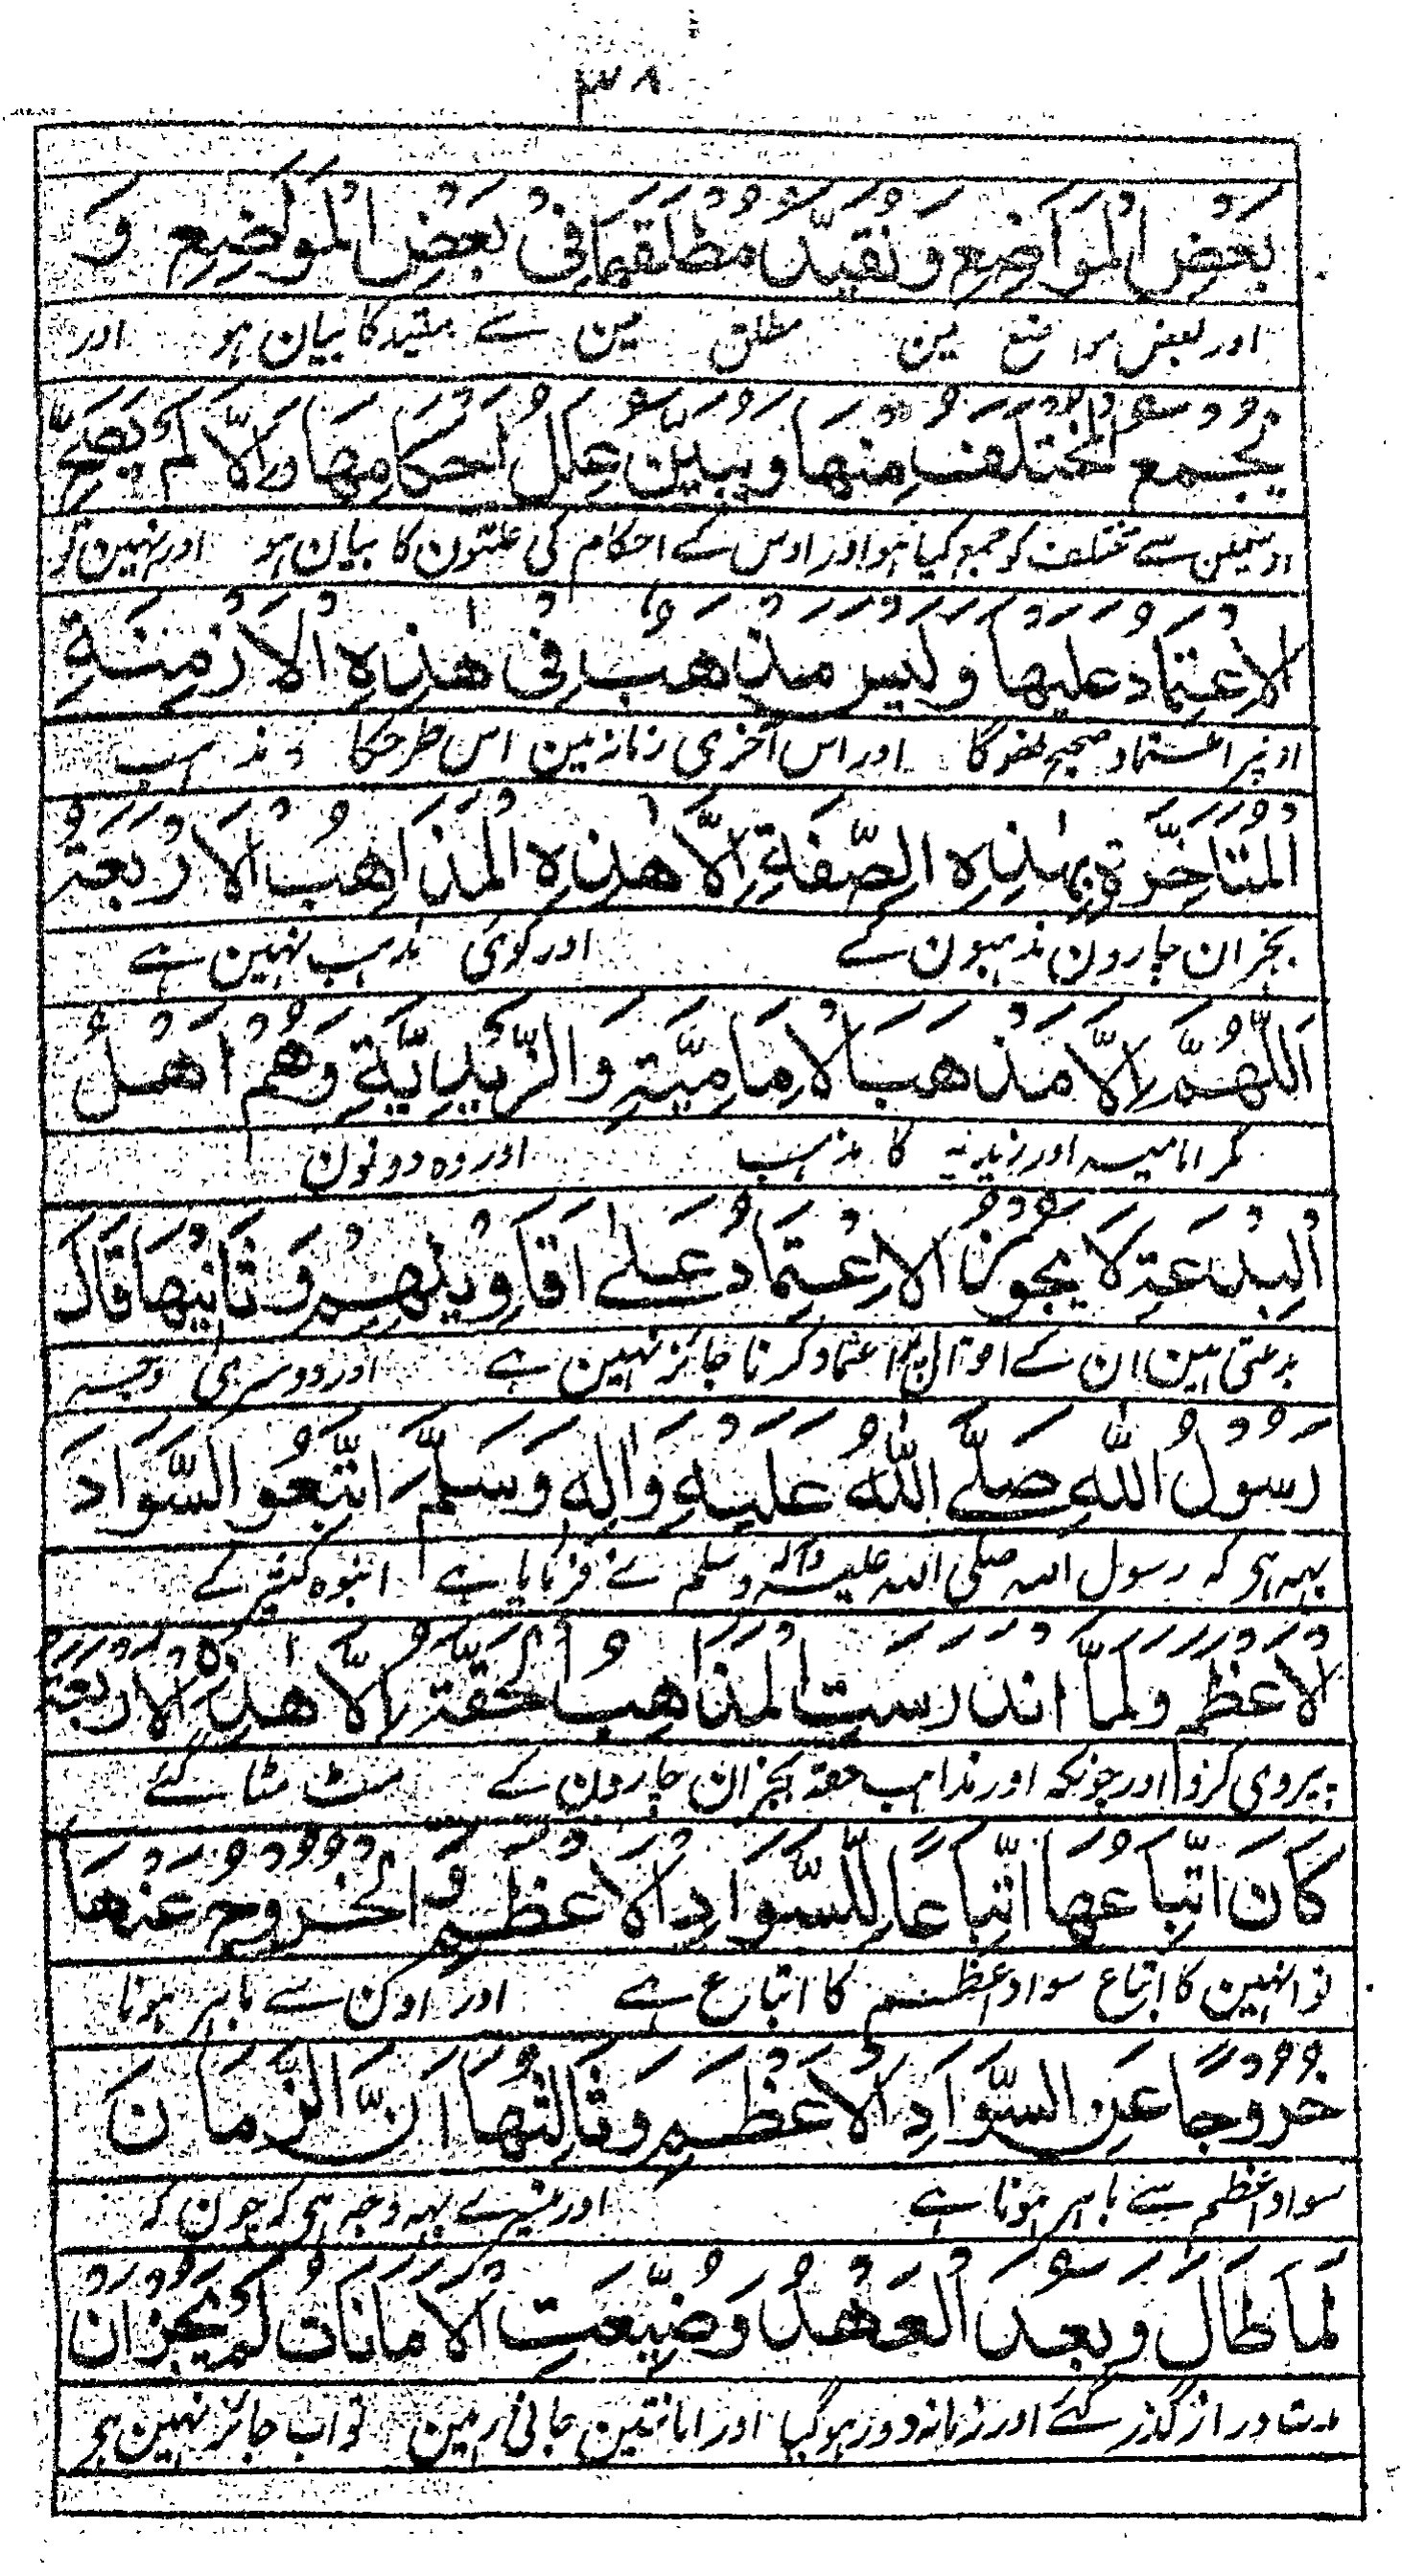 ٣٨
بَعْضِ الْمَوَاضِعِ وَنُقَيِّدَ مُطْلَقَهَا فِیْ بَعْضِ الْمَوَاضِعِ وَ
اور بعض مواضع مین مطلق مین سے مقید کا بیان ہو اور
يُجْمَعَ الْمُخْتَلَفُ مِنْهَا وَيُبَيَّنَ عِلَلُ اَحْكَامِهَا وَاِلَّا لَمْ يَصِحَّ
اور مختلف کو جمع کیا ہو اور اوس کے احکام کی علتون کا بیان ہو اور نہین تو
الْاِعْتِمَادُ عَلَيْهَا وَلَيْسَ مَذْهَبٌ فِیْ هٰذِهِ الْاَزْمِنَةِ
اونپر اعتماد صحیح نہوگا اور اس آخری زمانہ مین اس طرحکا مذہب
الْمُتَاَخِّرَةِ بِهٰذِهِ الصِّفَةِ اِلَّا هٰذِهِ الْمَذَاهِبُ الْاَرْبَعَةُ
بجز ان چارون مذہبون کے اور کوئی مذہب نہین ہے
اَللّٰهُمَّ اِلَّا مَذْهَبَ الْاِمَامِيَّةِ وَالزَّيْدِيَّةِ وَهُمْ اَهْلُ
مگر امامیہ اور زیدیہ کا مذہب اور وہ دونون
الْبِدْعَةِ لَا يَجُوْزُ الْاِعْتِمَادُ عَلٰے اَقَاوِيْلِهِمْ وَثَانِيْهَا قَالَ
بدعتی ہین ان کے اقوال پر اعتماد کرنا جائز نہین ہے اور دوسری وجہ
رَسُوْلُ اللّٰهِ صَلَّے اللّٰهُ عَلَيْهِ وَاٰلِهٖ وَسَلَّمَ اتَّبِعُوا السَّوَادَ
یہہ ہی کہ رسول اللہ صلی اللہ علیہ وآلہ وسلم نے فرمایا ہے انبوہ کثیر کے
الْاَعْظَمَ وَلَمَّا انْدَرَسَتِ الْمَذَاهِبُ الْحَقَّةُ اِلَّا هٰذِهِ الْاَرْبَعَةَ
پیروی کرو اور چونکہ اور مذاہب حقہ بجز ان چارون کے مٹ مٹا گئے
كَانَ اتِّبَاعُهَا اتِّبَاعًا لِلسَّوَادِ الْاَعْظَمِ وَالْخُرُوْجُ عَنْهَا
تو انہین کا اتباع سواد اعظم کا اتباع ہے اور اون سے باہر ہونا
خُرُوْجًا عَنِ السَّوَادِ الْاَعْظَمِ وَثَالِثُهَا اَنَّ الزَّمَانَ
سواد اعظم سے باہر ہونا ہے اور تیسرے یہہ وجہ ہی کہ چون کہ
لَمَّا طَالَ وَبَعُدَ الْعَهْدُ وَضُيِّعَتِ الْاَمَانَاتُ لَمْ يَجُزْ اَنْ
مدت دراز گذر گئے اور زمانہ دور ہوگیا اور امانتین جاتی رہین تو اب جائز نہین ہی